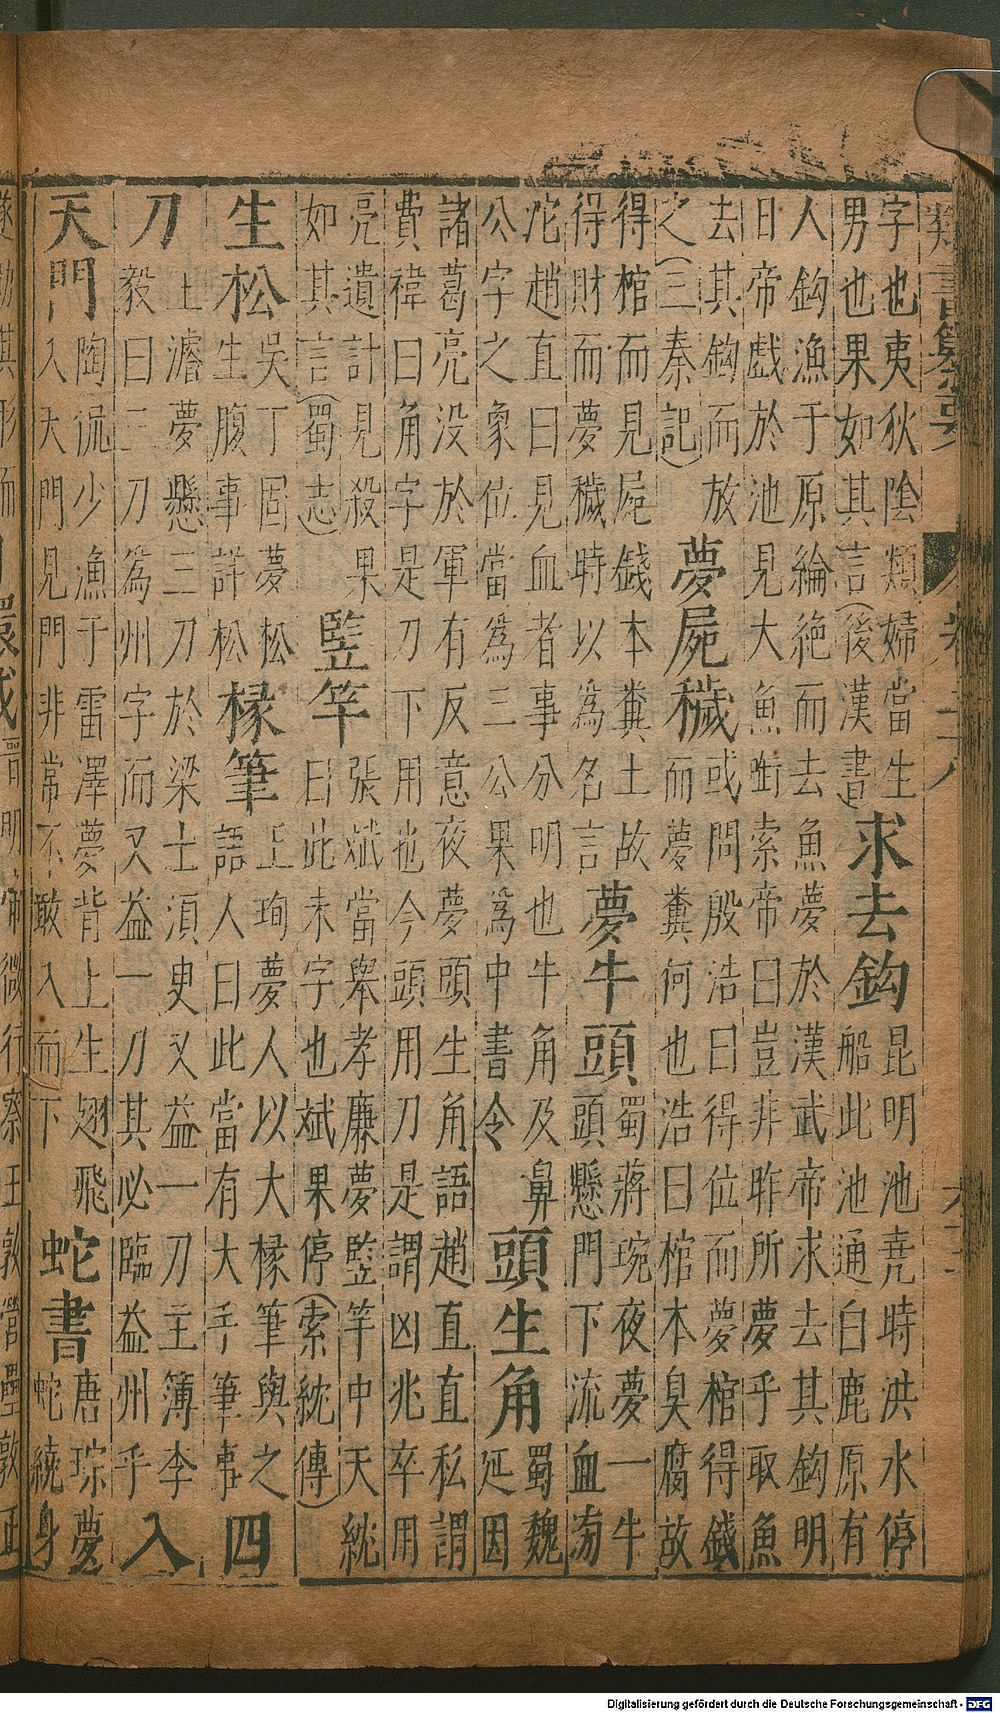 字也夷狄陰類婦當生
男也果如其言（後漢書）
求去鈎
昆明池堯時洪水停
船此池通白鹿原有
人鈎漁于原綸絶而去魚夢於漢武帝求去其鈎明
日帝戲於池見大魚啣索帝曰豈非昨所夢乎取魚
去其鈎而放
之（三秦記）
夢屍穢
或問殷浩曰得位而夢棺得錢
而夢糞何也浩曰棺本臭腐故
得棺而見屍錢本糞土故
得財而夢穢時以為名言
夢牛頭
蜀蔣琬夜夢一牛
頭懸門下流血滂
沱趙直曰見血者事分明也牛角及鼻
公字之象位當為三公果為中書令
頭生角
蜀魏
延因
諸葛亮没於軍有反意夜夢頭生角語趙直直私謂
費禕曰角字是刀下用也今頭用刀是謂凶兆卒用
亮遺計見殺果
如其言（蜀志）
監竿
張斌當舉孝廉夢監竿中天紞
曰此未字也斌果停（索紞傳）
生松
吳丁固夢松
生腹事詳松
椽筆
王珣夢人以大椽筆與之
語人曰此當有大手筆事
四
刀
上濬夢懸三刀於梁士湏叓又益一刀主簿李
毅曰二刀為州字而又益一刀其必臨益州乎
入
天門
陶侃少漁于雷澤夢背上生翅飛
入天門見門非常不敢入而下
蛇書
唐琮夢
蛇繞身
Digitalisierung gefördert durch die Deutsche Forschungsgemeinschaft - DFG